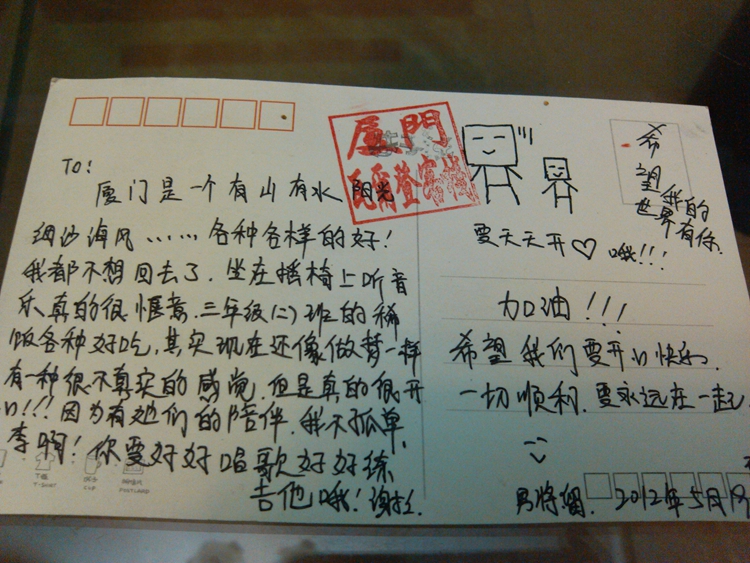 TO:
厦门是一个有山有水 阳光
细沙海风……各种各样的好!
我都不想回去了.坐在摇椅上听音
乐真的很惬意.三年级(二)班的稀
饭各种好吃.其实现在还像做梦一样
有一种很不真实的感觉.但是真的很开
心!!!因为有她们的陪伴.我不孤单.
李啊!你要好好唱歌好好练
吉他哦!
T恤
T-SHIRT
杯子
CUP
明信片
POSTCARD
厦門
瓦爾登客棧
希望
我的
世界有你.
要天天开♡哦!!!
加油!!!
希望我们要开心快乐.
一切顺利.要永远在一起.
2012年5月